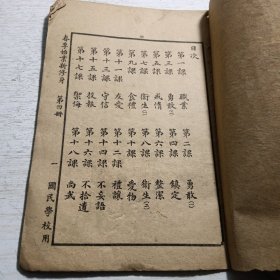 目次
第一課 職業
第二課 勇敢(一)
第三課 勇敢(二)
第四課 鎮定
第五課 戒惰
第六課 整潔
第七課 衛生(一)
第八課 衛生(二)
第九課 食禮
第十課 愛物
第十一課 友愛
第十二課 禮讓
第十三課 守信
第十四課 不妄語
第十五課 投報
第十六課 不拾遺
第十七課 禦侮
第十八課 尚武
春季始業新修身 第四冊 一 國民學校用